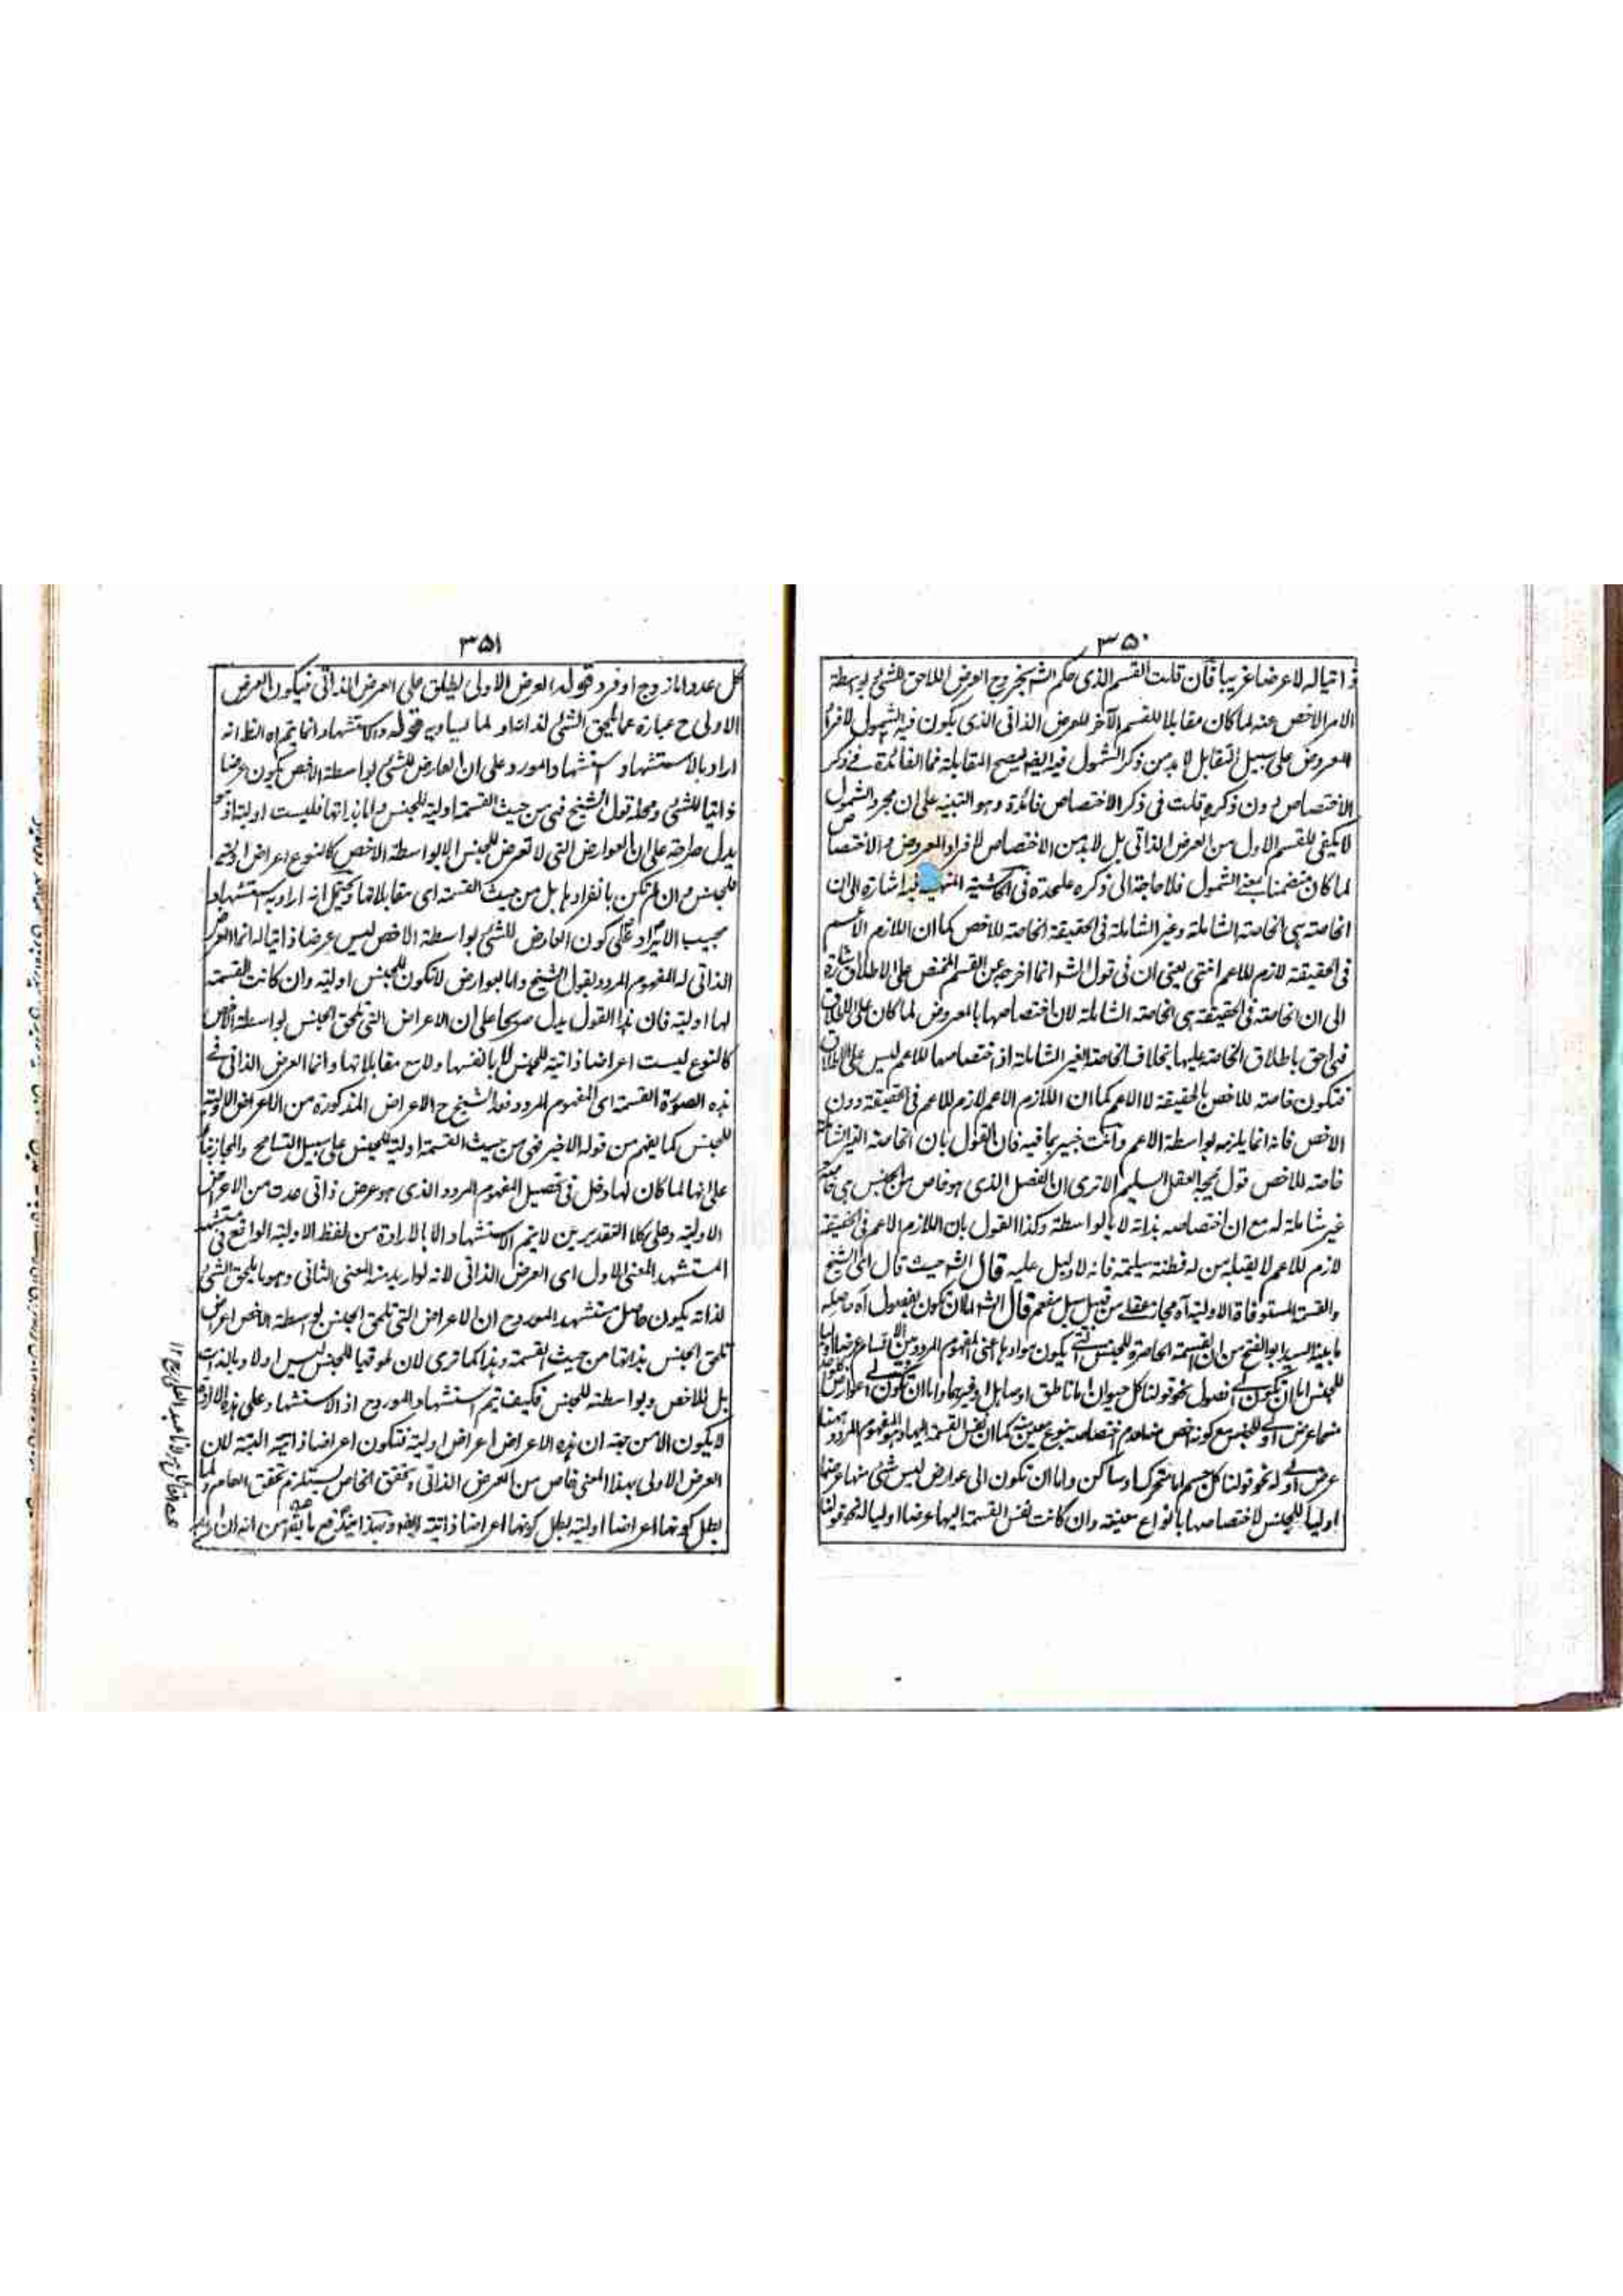 ٣٥٠
ذاتيا له لا عرضا غريبا فان قلت القسم الذى حكم الشم بخروج العرض اللاحق للشئ بواسطة
الامر الاخص عنه لما كان مقابلا للقسم الآخر للعرض الذاتى الذى يكون فيه الشمول لافراد
المعروض على سبيل التقابل لا بد من ذكر الشمول فيه ايضا ليصح المقابلة فما الفائدة فى ذكر
الاختصاص دون ذكره قلت فى ذكر الاختصاص فائدة وهو التنبيه على ان مجرد الشمول
لا يكفى للقسم الاول من العرض الذاتى بل لا بد من الاختصاص لافراد المعروض والاختصاص
لما كان متضمنا لمعنى الشمول فلا حاجة الى ذكره عليحدة فى الحاشية المنهية فيه اشارة الى ان
الخاصة هى الخاصة الشاملة وغير الشاملة فى الحقيقة الخاصة للاخص كما ان اللازم الاعم
فى الحقيقة لازم للاعم انتهى يعنى ان فى قول الشم انما اخرجه عن القسم المختص على الاطلاق اشارة
الى ان الخاصة فى الحقيقة هى الخاصة الشاملة لان اختصاصها بالمعروض لما كان على الاطلاق
فهى احق باطلاق الخاصة عليها بخلاف الخاصة الغير الشاملة اذ اختصاصها للاعم ليس على الاطلاق
فتكون خاصة للاخص بالحقيقة لا الاعم كما ان اللازم الاعم لازم للاعم فى الحقيقة دون
الاخص فانه انما يلزمه بواسطة الاعم وانت خبير بما فيه فان القول بان الخاصة الغير الشاملة
خاصة للاخص قول يمجه العقل السليم الا ترى ان الفصل الذى هو خاص من الجنس هى خاصة
غير شاملة له مع ان اختصاصه بذاته لا بالواسطة وكذا القول بان اللازم الاعم فى الحقيقة
لازم للاعم لا يقبله من له فطنة سليمة فانه لا دليل عليه قال الشم حيث قال اى الشيخ
والقسمة المستوفاة الاولية آه مجاز عقلى من قبيل سيل مفعم قال الشم اما ان تكون بفصول آه حاصله
ما بينه السيد ابو الفتح من ان القسمة الحاصرة للجنس التى يكون مواردها اعنى المفهوم المردد بين الاقسام عرضا اوليا
للجنس اما ان تكون الى فصول نحو قولنا كل حيوان اما ناطق او صاهل او غيرهما واما ان تكون الى عوارض
منها عرض اولى للجنس مع كونه اخص منه لعدم اختصاصه بنوع معين كما ان نفس القسمة اليها وهو المفهوم المردد بينها
عرض اولى له نحو قولنا كل جسم اما متحرك او ساكن واما ان تكون الى عوارض ليس شئ منها عرضا
اوليا للجنس لاختصاصها بانواع معينة وان كانت نفس القسمة اليها عرضا اوليا له نحو قولنا
٣٥١
كل عدد اما زوج او فرد قوله العرض الاولى يطلق على العرض الذاتى فيكون العرض
الاولى ح عبارة عما يلحق الشئ لذاته او لما يساويه قوله والاستشهاد انما يتم اه الظ انه
اراد بالاستشهاد استشهاد المورد على ان العارض للشئ بواسطة الاخص يكون عرضا
ذاتيا للشئ ومحله قول الشيخ فهى من حيث القسمة اولية للجنس واما بذاتها فليست اولية
يدل صراحة على ان العوارض التى لا تعرض للجنس الا بواسطة الاخص كالنوع اعراض اولية
للجنس وان لم تكن بانفرادها بل من حيث القسمة اى مقابلاتها ويحتمل انه اراد به استشهاد
مجيب الايراد على كون العارض للشئ بواسطة الاخص ليس عرضا ذاتيا له انما العرض
الذاتى له المفهوم المردد بقول الشيخ واما بعوارض لا تكون للجنس اولية وان كانت القسمة
لها اولية فان هذا القول يدل صريحا على ان الاعراض التى تلحق الجنس بواسطة الاخص
كالنوع ليست اعراضا ذاتية للجنس لا بانفسها ولا مع مقابلاتها وانما العرض الذاتى فى
هذه الصورة القسمة اى المفهوم المردد فعد الشيخ ح الاعراض المذكورة من الاعراض الاولية
للجنس كما يفهم من قوله الاخير فهى من حيث القسمة اولية للجنس على سبيل التسامح والمجاز بناء
على انها لما كان لها دخل فى تحصيل المفهوم المردد الذى هو عرض ذاتى عدت من الاعراض
الاولية وعلى كلا التقديرين لا يتم الاستشهاد الا بالارادة من لفظ الاولية الواقع فى
المستشهد المعنى الاول اى العرض الذاتى لانه لو اريد منه المعنى الثانى وهو ما يلحق الشئ
لذاته يكون حاصل مستشهد المورد ح ان الاعراض التى تلحق الجنس بواسطة الاخص اعراض
تلحق الجنس بذاتها من حيث القسمة وهذا كما ترى لان لحوقها للجنس ليس اولا وبالذات
بل للاخص وبواسطته للجنس فكيف يتم استشهاد المورد ح اذ الاستشهاد على هذه الارادة
لا يكون الا من جهة ان هذه الاعراض اعراض اولية فتكون اعراضا ذاتية البتة لان
العرض الاولى بهذا المعنى خاص من العرض الذاتى وتحقق الخاص يستلزم تحقق العام ولما
بطل كونها اعراضا اولية بطل كونها اعراضا ذاتية ايضا وبهذا يندفع ما يتوهم من انه ان